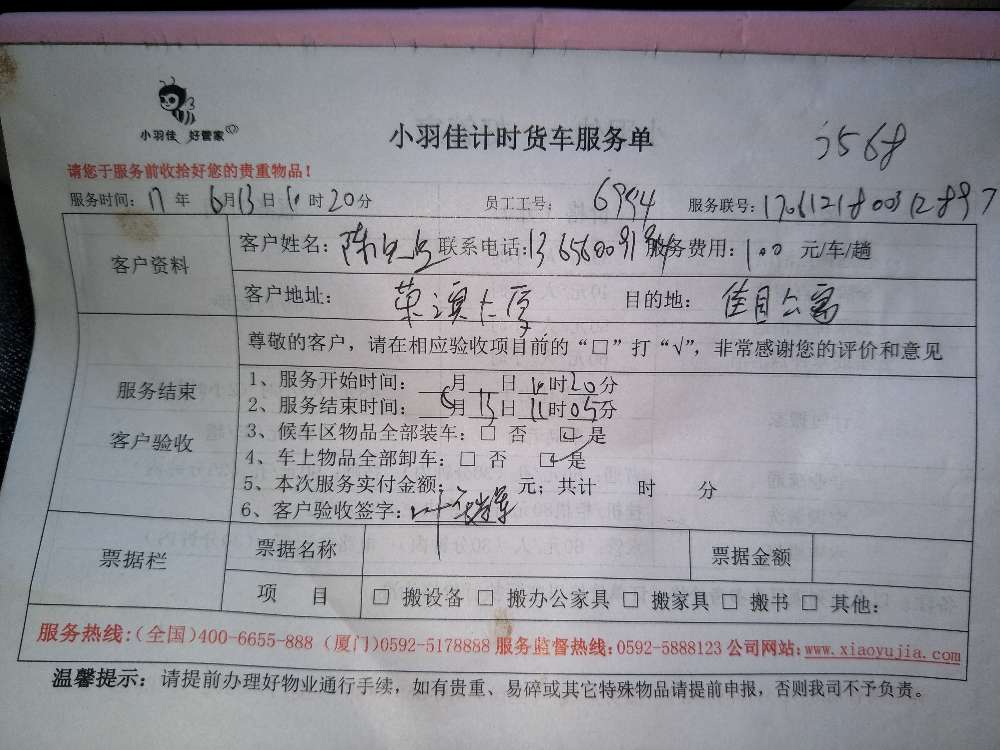 小羽佳 好管家
小羽佳计时货车服务单
J568
请您于服务前收拾好您的贵重物品！
服务时间：17 年 6月13日10时20分 员工工号： 6994 服务联号：
客户资料
客户姓名：陈 联系电话： 服务费用：100 元/车/趟
客户地址： 荣滨大厦 目的地： 佳目公寓
服务结束
客户验收
尊敬的客户，请在相应验收项目前的“□”打“√”，非常感谢您的评价和意见
1、服务开始时间： 月 日10时20分
2、服务结束时间： 6月13日11时05分
3、候车区物品全部装车：□ 否 ☑ 是
4、车上物品全部卸车：□ 否 ☑ 是
5、本次服务实付金额： 元；共计 时 分
6、客户验收签字：
票据栏
票据名称 票据金额
项 目 □ 搬设备 □ 搬办公家具 □ 搬家具 □ 搬书 □ 其他：
服务热线：（全国）400-6655-888（厦门）0592-5178888 服务监督热线：0592-5888123 公司网站：www.xiaoyujia.com
温馨提示：请提前办理好物业通行手续，如有贵重、易碎或其它特殊物品请提前申报，否则我司不予负责。